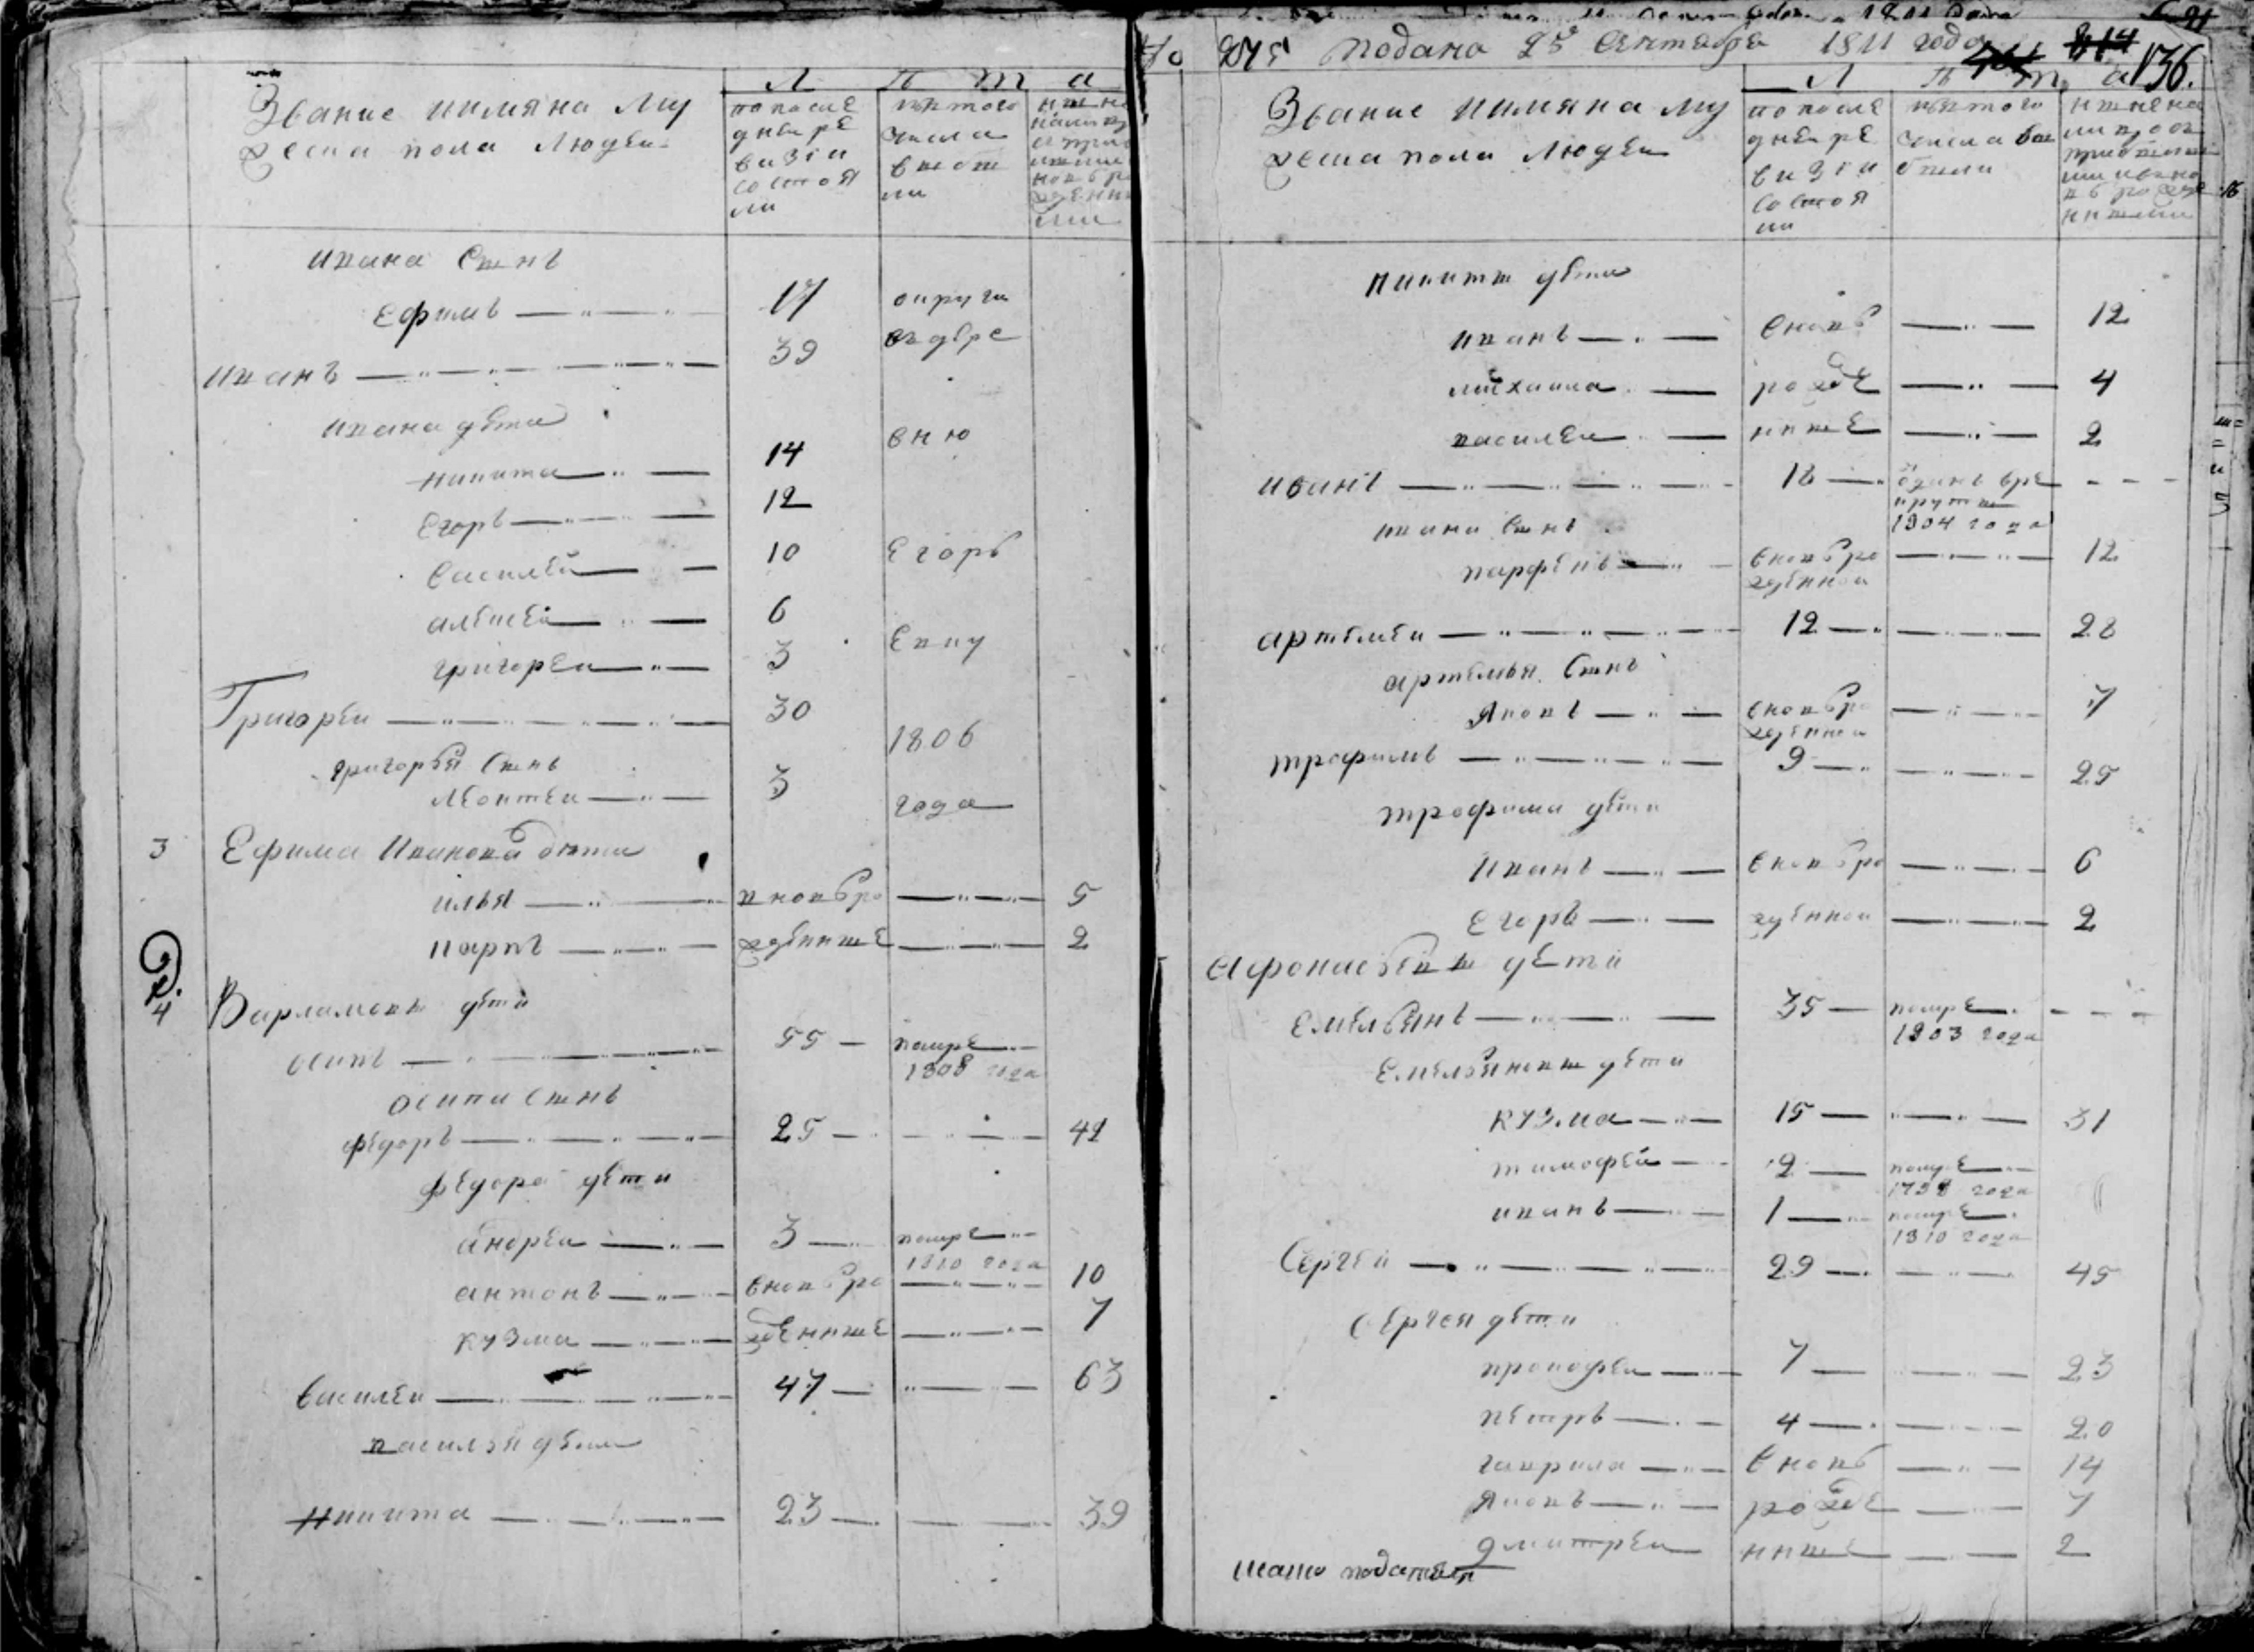 Звание имяна му
жеска пола людей
Л ѣ т а
по после
дней ре
визiи
состоя
ли
изтого
числа
выбы
ли
ивана сынъ
ефимъ 17 округи
иванъ 39 въ дврс
ивана дѣти
никита 14 вню
егоръ 12
василей 10 Егоръ
алексей 6
григорей 3 Екпу
Григорей 30
григорья сынъ 1806
леонтей 3 года
3 Ефима Иванова дѣти
илья вновьро 5
карпъ жденные 2
4 Варламовы дѣти
осипъ 55 помре
1808 года
осипа сынъ
федоръ 25 41
федора дети
андреи 3 помре
1810 года
антонъ вновьро 10
кузма жденные 7
василеи 47 63
василья дѣти
никита 23 39
No 275 подано 25 Сентября 1811 года
136.
Звание имяна му
жеска пола людей
Л ѣ т а
по после
дней ре
визiи
состоя
ли
изтого
числа вы
были
никиты дѣти
иванъ вновь 12
михаила рожде 4
василеи нные 2
иванъ 18 отданъ вре
круты
1804 года
ивана сынъ
парфенъ вновьро 12
жденной
артемеи 12 28
артемья сынъ
Яковъ вновьро 7
жденной
трофимъ 9 25
трофима дѣти
Иванъ вновьро 6
Егоръ жденной 2
Афонасьевы дѣти
Емельянъ 35 помре
1803 года
Емельяновы дѣти
кузма 15 31
тимофей 2 помре
1798 года
иванъ 1 помре
1810 года
Сергей 29 45
Сергея дѣти
прокофеи 7 23
петръ 4 20
гаврила вновь 14
Яковъ рожде 7
дмитреи нные 2